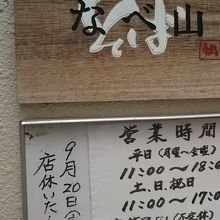 なべ山
そば
営業時間
平日(月曜〜金曜)
11:00〜18:0
土、日、祝日
11:00〜17:0
9月20日(
店休いた